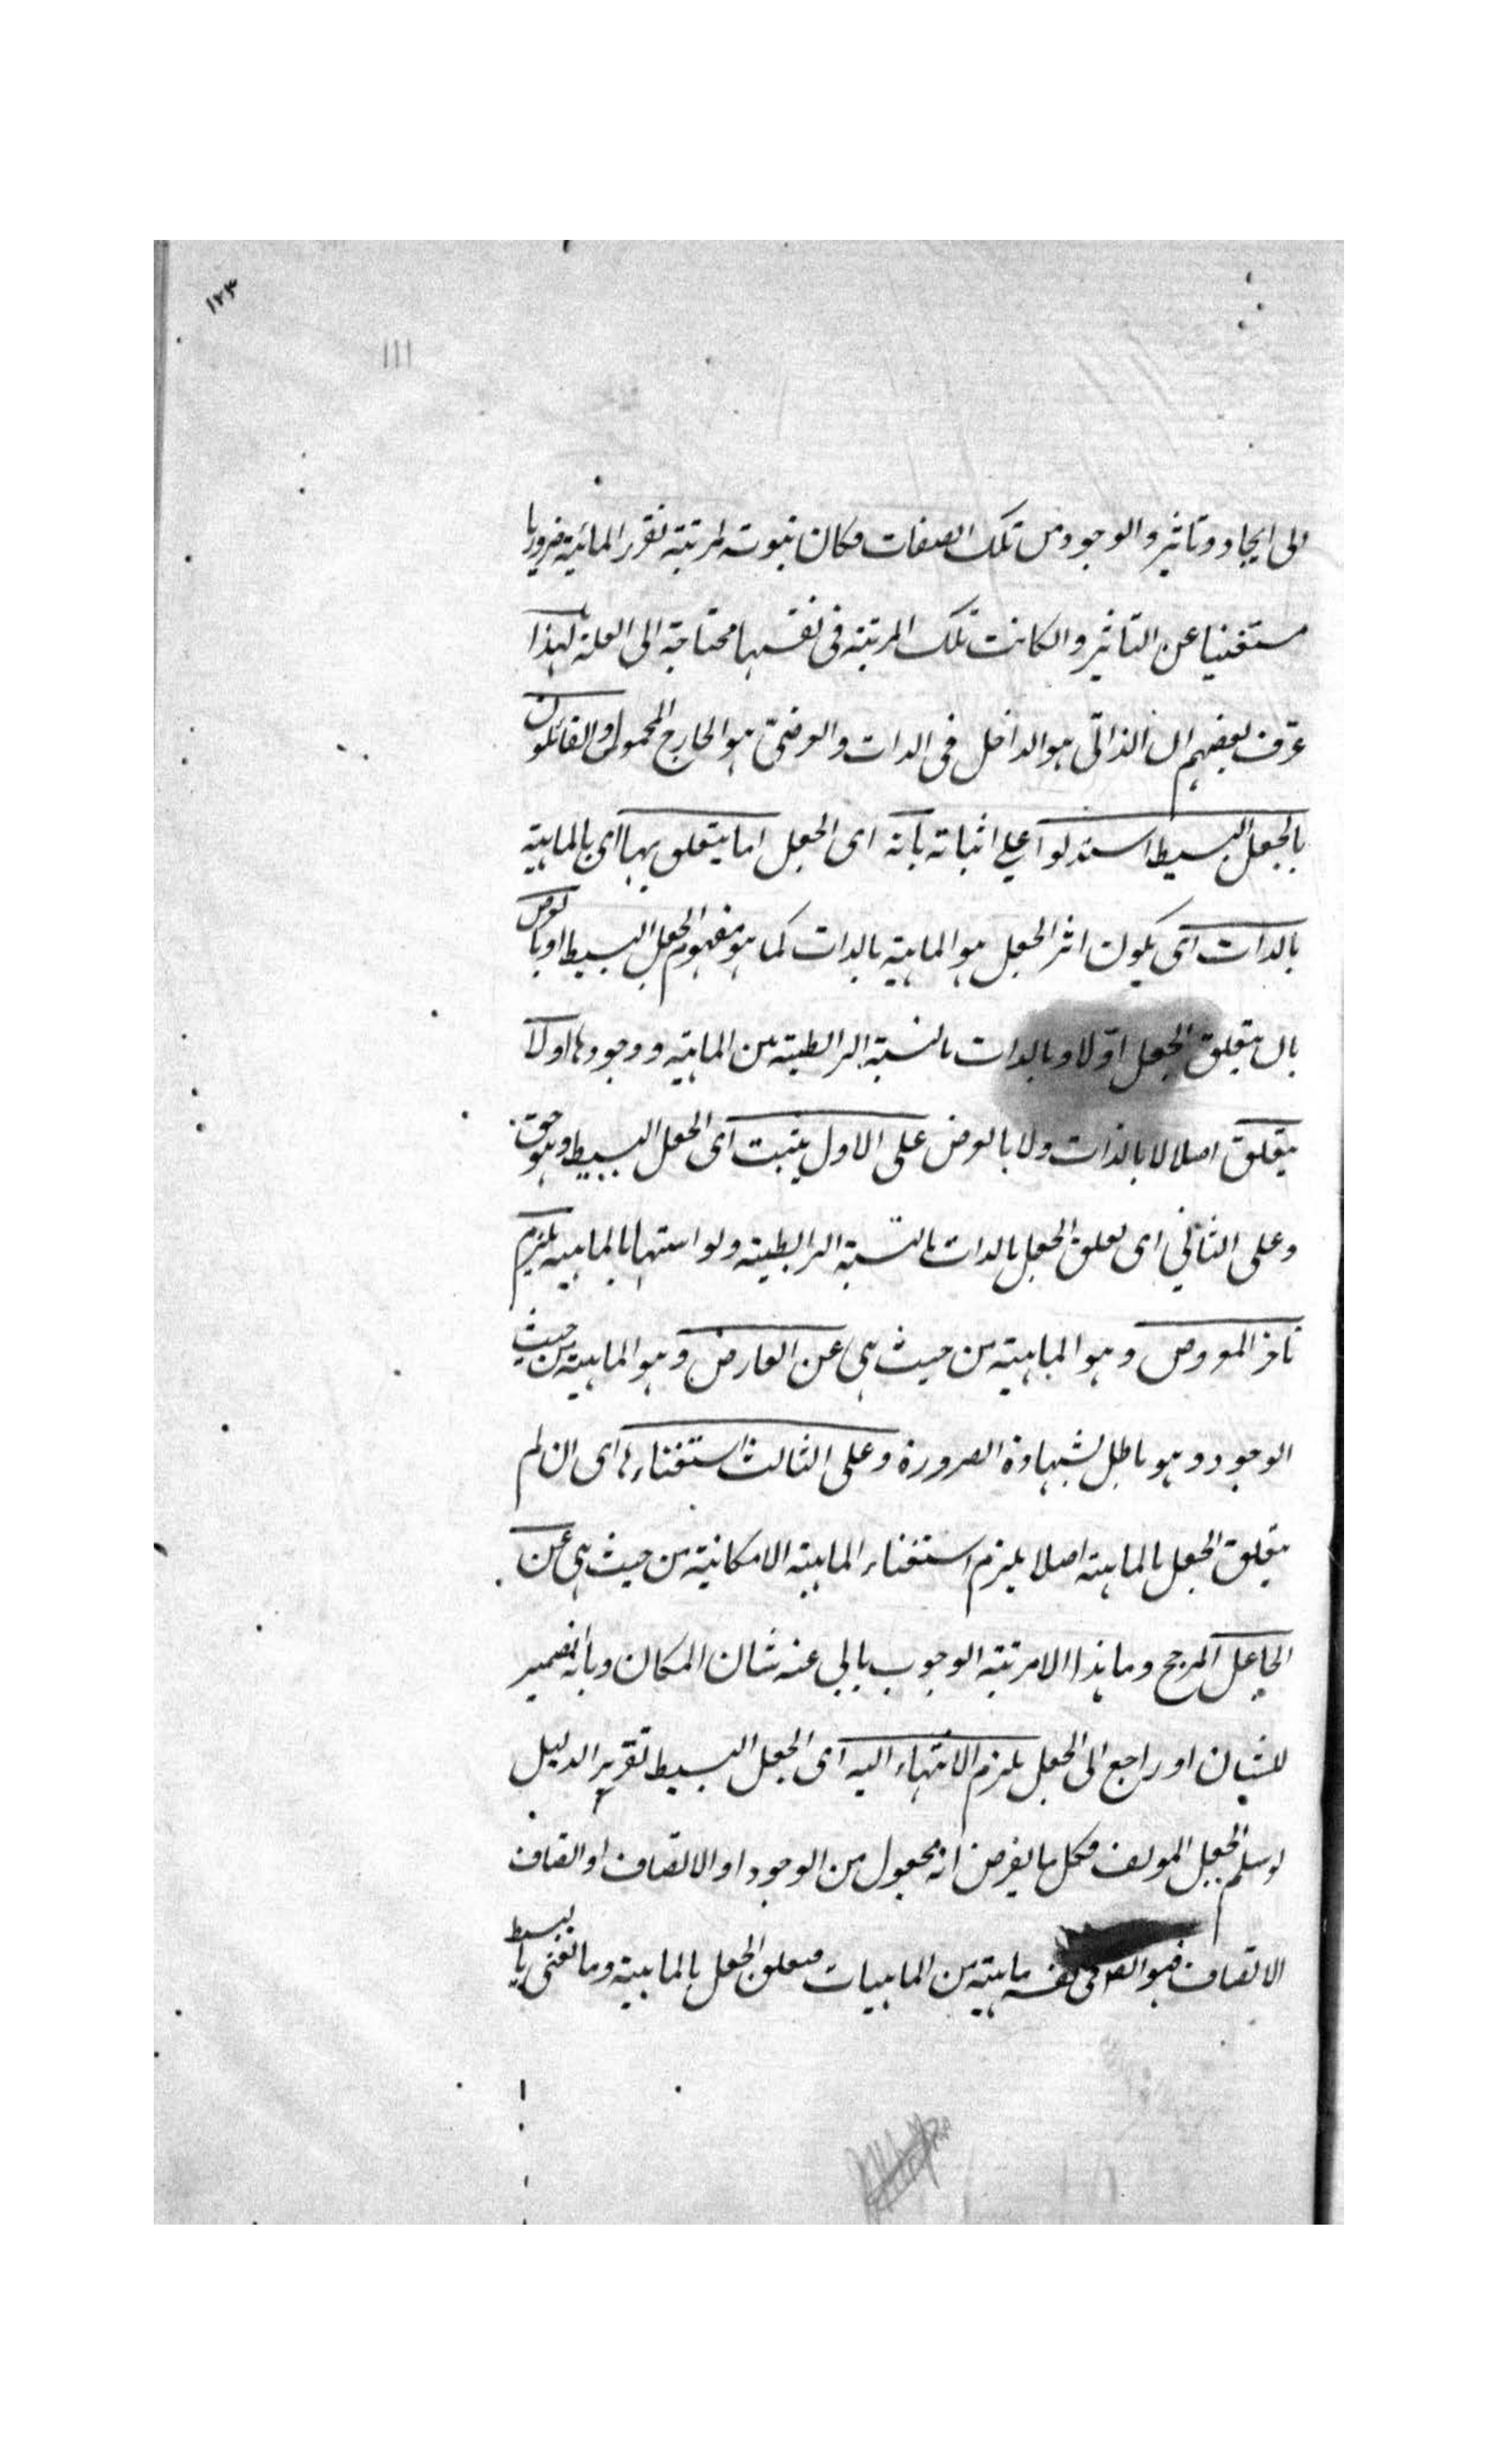 ١٢٣
١١١
الى ايجاد وتاثير والوجود من تلك الصفات فكان ثبوته لمرتبة تقرر الماهية ضروريا
مستغنيا عن التاثير وان كانت تلك المرتبة في نفسها محتاجة الى العلة لهذا
عرف بعضهم ان الذاتي هو الداخل في الذات والعرضي هو الخارج المحمول والقائلون
بالجعل البسيط استدلوا على اثباته بانه اى الجعل اما يتعلق بها اى بالماهية
بالذات اى يكون اثر الجعل هو الماهية بالذات كما هو مفهوم الجعل البسيط او بالعرض
بان يتعلق الجعل اولا وبالذات بالنسبة الرابطية بين الماهية ووجودها او لا
يتعلق اصلا لا بالذات ولا بالعرض على الاول يثبت اى الجعل البسيط وهو حق
وعلى الثاني اى تعلق الجعل بالذات بالنسبة الرابطية وبواسطتها بالماهية يلزم
تاخر المعروض وهو الماهية من حيث هي عن العارض وهو الماهية من حيث
الوجود وهو باطل بشهادة الضرورة وعلى الثالث استغناءها اى ان لم
يتعلق الجعل بالماهية اصلا يلزم استغناء الماهية الامكانية من حيث هي عن
الجاعل المرجح وما هذا الا مرتبة الوجوب يابى عنه شان الامكان وبانه ضمير
للشان او راجع الى الجعل يلزم الانتهاء اليه اى الجعل البسيط تقرير الدليل
لو سلم الجعل المولف فكل ما يفرض انه مجعول من الوجود او الاتصاف او اتصاف
الاتصاف فهو ايضا في نفسه ماهية من الماهيات فتعلق الجعل بالماهية وما نعني بالبسيط